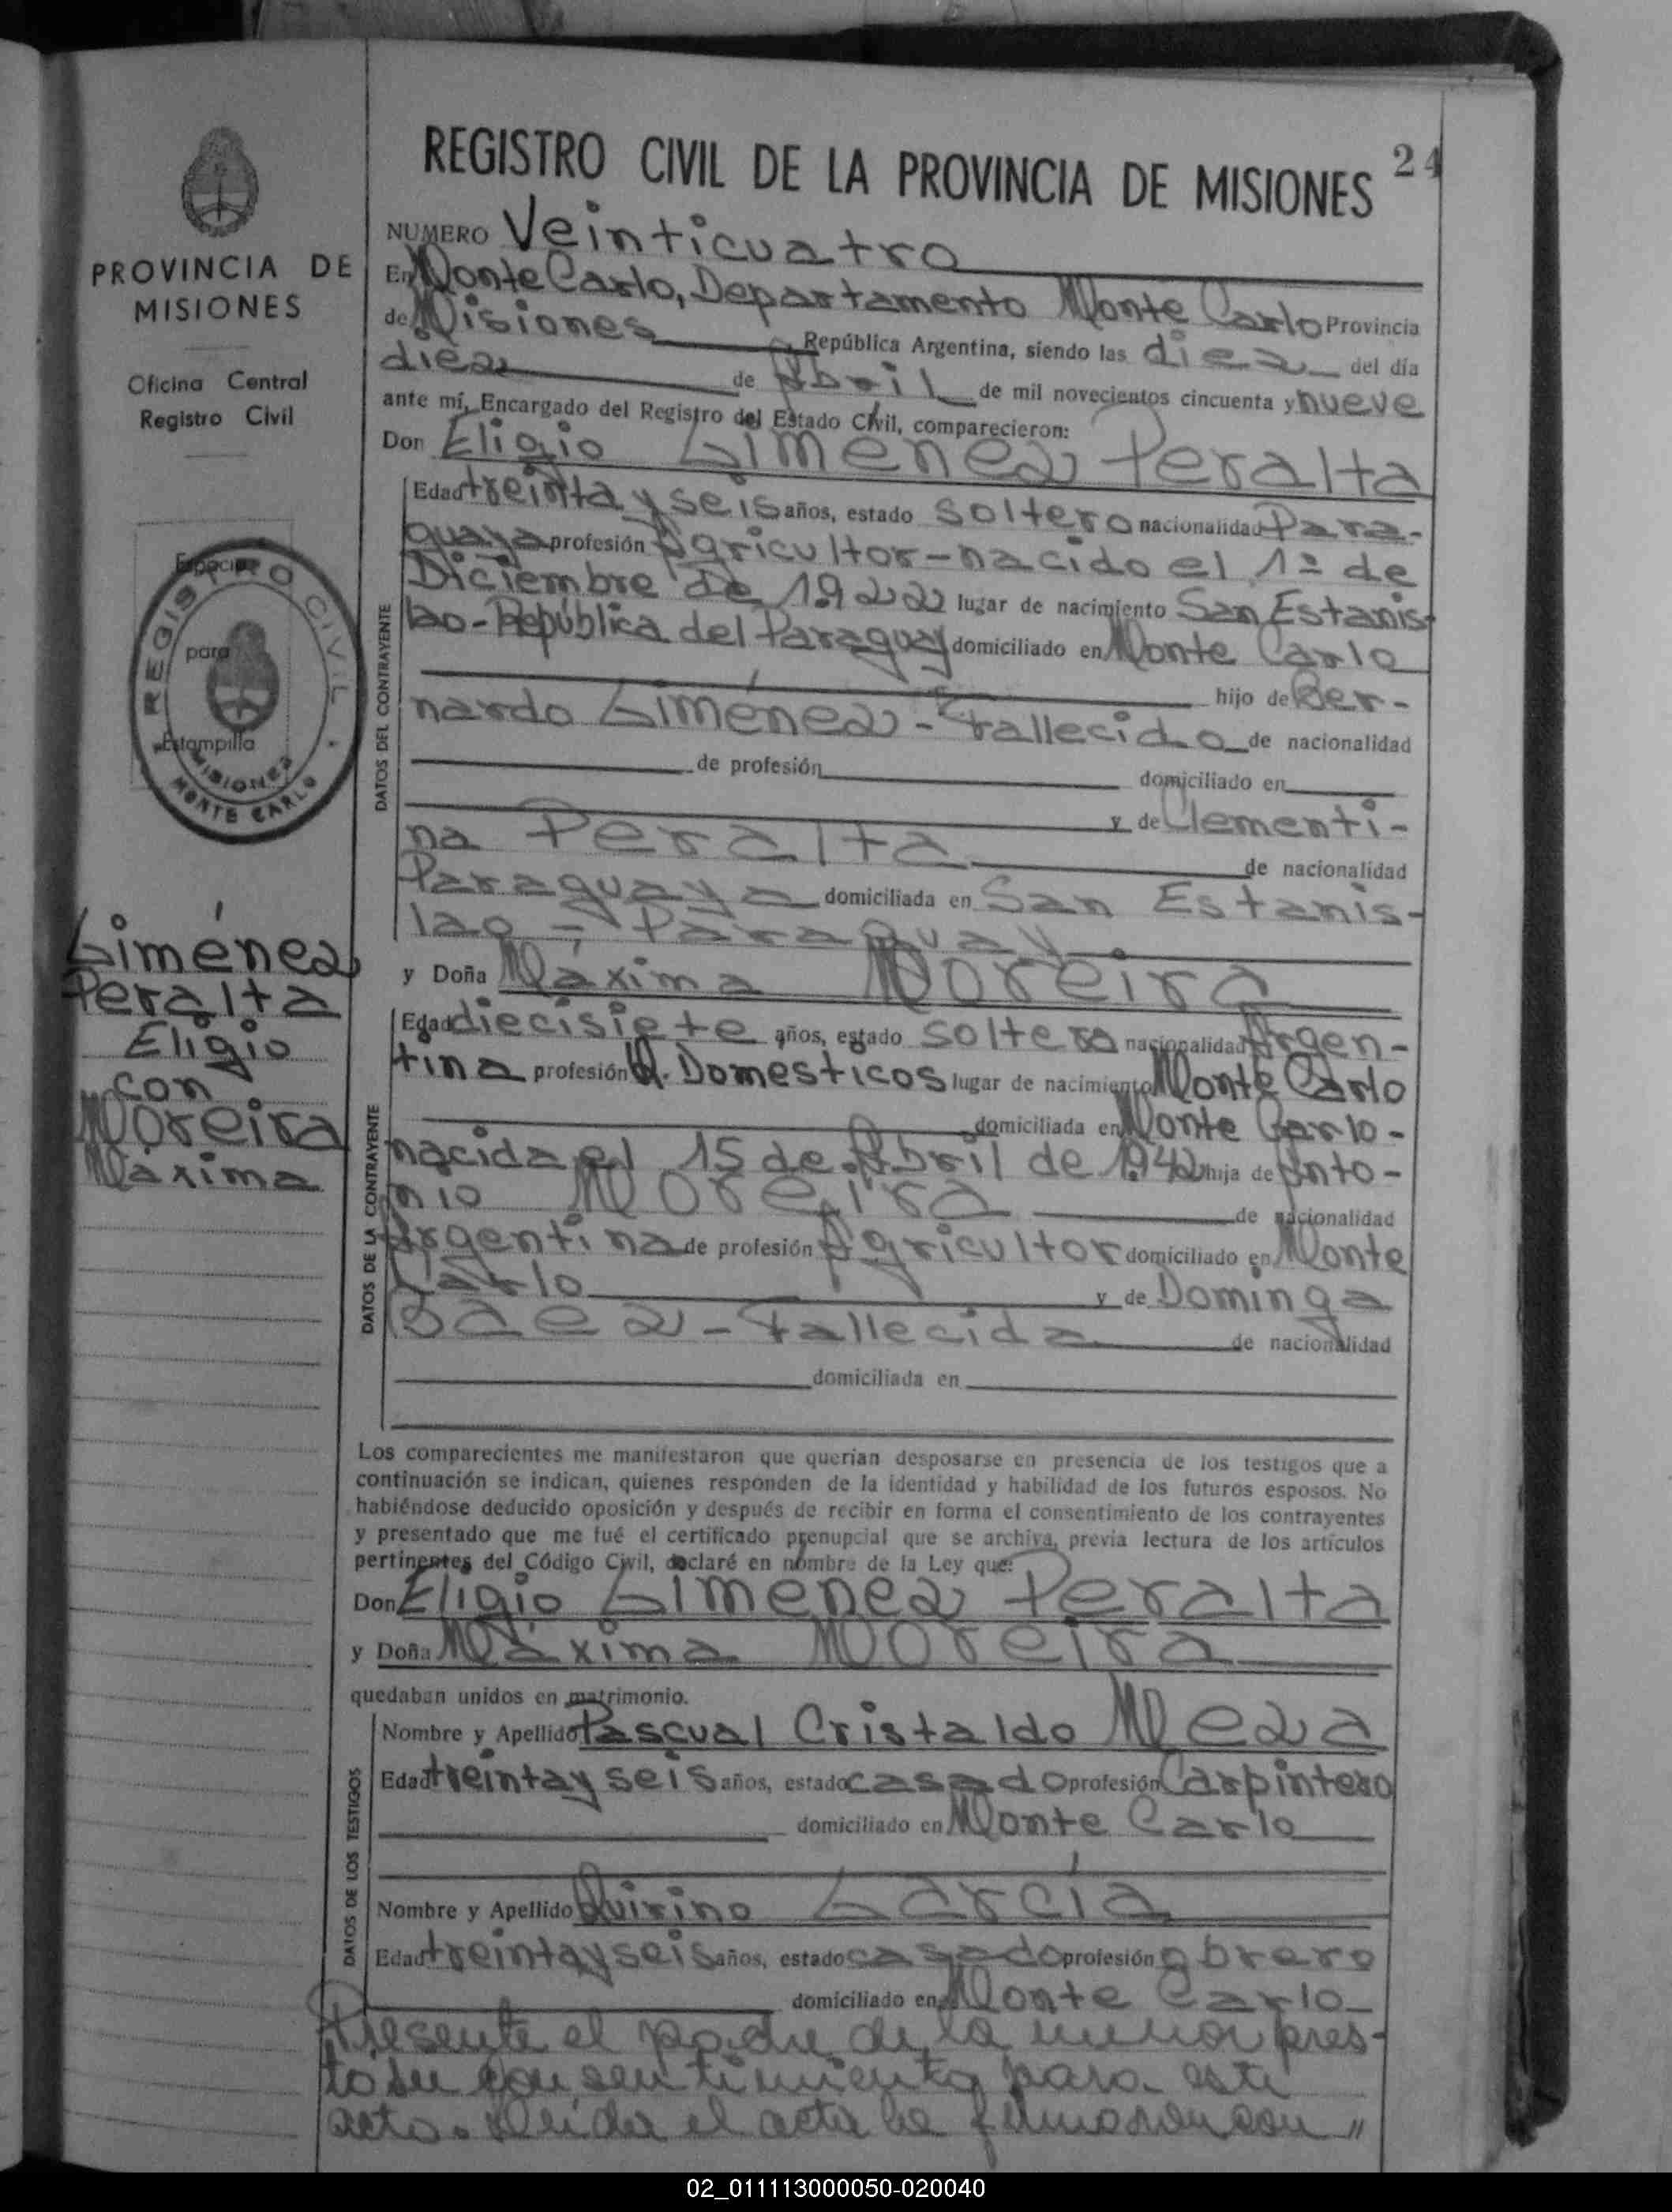 REGISTRO CIVIL DE LA PROVINCIA DE MISIONES 24
PROVINCIA DE
MISIONES
Oficina Central
Registro Civil
NUMERO Veinticuatro
En Monte Carlo, Departamento Monte Carlo Provincia
de Misiones República Argentina, siendo las diez del día
diez de Abril de mil novecientos cincuenta y nueve
ante mí, Encargado del Registro del Estado Civil, comparecieron:
Don Eligio Giménez Peralta
Edad treinta y seis años, estado soltero nacionalidad Para-
guaya profesión Agricultor-nacido el 1º de
Diciembre de 1922 lugar de nacimiento San Estanis-
lao-República del Paraguay domiciliado en Monte Carlo
hijo de Ber-
nardo Giménez - Fallecido de nacionalidad
de profesión domiciliado en
y de Clementi-
na Peralta de nacionalidad
Paraguaya domiciliada en San Estanis-
lao - Paraguay
DATOS DEL CONTRAYENTE
Especie
para
Estampilla
REGISTRO CIVIL
MISIONES
MONTE CARLO
Giménez
Peralta
Eligio
con
Moreira
Máxima
y Doña Máxima Moreira
Edad diecisiete años, estado soltera nacionalidad Argen-
tina profesión Q. Domesticos lugar de nacimiento Monte Carlo
domiciliada en Monte Carlo-
nacida el 15 de Abril de 1942 hija de Anto-
nio Moreira de nacionalidad
Argentina de profesión Agricultor domiciliado en Monte
Carlo y de Dominga
Báez - Fallecida de nacionalidad
domiciliada en
DATOS DE LA CONTRAYENTE
Los comparecientes me manifestaron que querían desposarse en presencia de los testigos que a
continuación se indican, quienes responden de la identidad y habilidad de los futuros esposos. No
habiéndose deducido oposición y después de recibir en forma el consentimiento de los contrayentes
y presentado que me fué el certificado prenupcial que se archiva, previa lectura de los artículos
pertinentes del Código Civil, declaré en nombre de la Ley que:
Don Eligio Giménez Peralta
y Doña Máxima Moreira
quedaban unidos en matrimonio.
Nombre y Apellido Pascual Cristaldo Meza
Edad treinta y seis años, estado casado profesión Carpintero
domiciliado en Monte Carlo
Nombre y Apellido Quirino García
Edad treinta y seis años, estado casado profesión obrero
domiciliado en Monte Carlo
DATOS DE LOS TESTIGOS
Presente el padre de la menor pres-
tó su consentimiento para este
acto. Leída el acta la firmaron con "
02_011113000050-020040